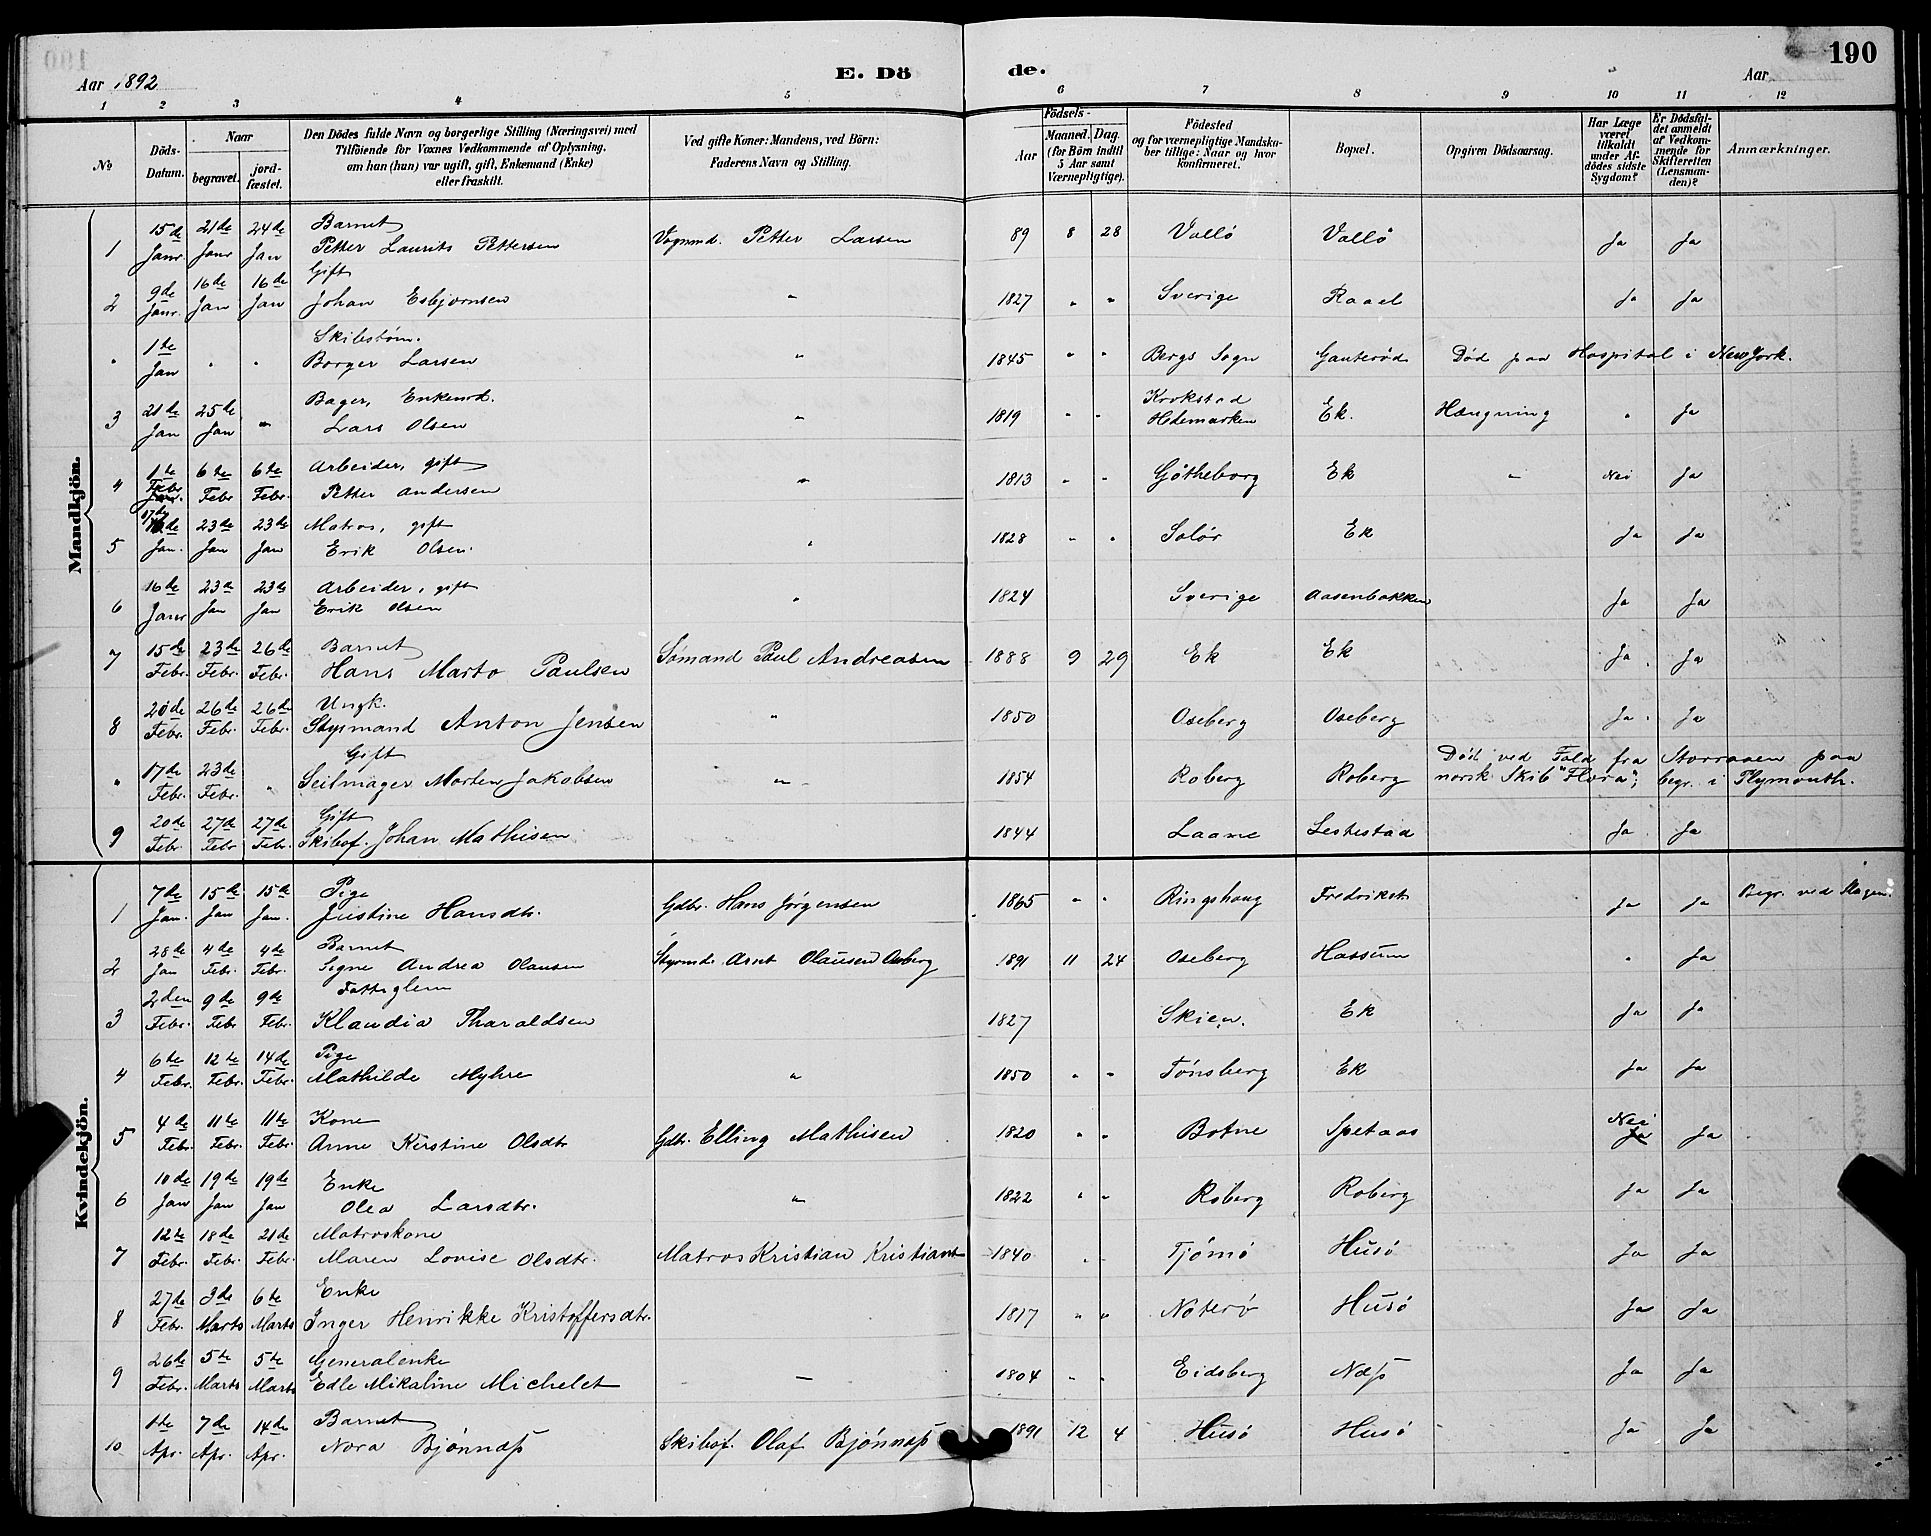 190
Aar 1892
E. Dö de.
Aar
1 2 3 4 5 6 7 8 9 10 11 12
No
Döds-Datum.
Naar
begravet.
jord-fæstet.
Den Dödes fulde Navn og borgerlige Stilling (Næringsvei) med
Tilföiende for Voxnes Vedkommende af Oplysning,
om han (hun) var ugift, gift, Enkemand (Enke)
eller fraskilt.
Ved gifte Koner: Mandens, ved Börn:
Faderens Navn og Stilling.
Födsels-
Aar
Maaned. Dag.
(for Börn indtil 5 Aar samt Værnepligtige).
Födested
og for værnepligtige Mandska-
ber tillige: Naar og hvor
konfirmeret.
Bopæl.
Opgiven Dödsaarsag.
Har Læge været tilkaldt under Af-dödes sidste Sygdom?
Er Dödsfal-det anmeldt af Vedkom-mende for Skifteretten (Lensman-den)?
Anmærkninger.
Mandkjön.
1 15de Janr. 21de Janr 24de Jan Barnet Petter Laurits Pettersen Vognmd. Petter Larsen 89 8 28 Vallö Vallö Ja Ja
2 9de Janr. 16de Jan 16de Jan Gift Johan Esbjørnsen " 1827 " " Sverige Raael Ja Ja
" 1te Jan " " Skibstøm. Borger Larsen " 1845 " " Bergs Sogn Gauterød Død paa Hospital i New York.
3 21de Jan 25de Jan " Bager, Enkemd. Lars Olsen " 1819 " " Krokstad Hedemarken Ek. Hængning " Ja
4 1te Febr. 6te Febr 6te Febr. Arbeider, gift Petter Andersen " 1813 " " Götheborg Ek " Nei Ja
5 17de Jan. 23de Jan 23de Jan Matros, gift Erik Olsen. " 1828 " " Solør Ek Ja Ja
6 16de Janr 23de Jan 23de Jan Arbeider, gift Erik Olsen " 1824 Sverige Aasenbakken Ja Ja
7 15de Febr. 23de Febr. 26de Febr. Barnet Hans Marto Paulsen Sømand Paul Andreasen 1888 9 29 Ek Ek Ja Ja
8 20de Febr. 26de Febr. 26de Febr. Ungk. Stymand Anton Jensen " 1850 Oseberg Oseberg Ja Ja
" 17de Febr. 23de Febr. " Gift Seilmager Morten Jakobsen " 1854 Roberg Roberg Død ved Fald fra Storraaen paa
norsk Skib "Flora"; begr. i Plymouth.
9 20de Febr. 27de Febr 27de Febr. Gift Skibsf. Johan Mathisen 1844 Laane Lestestad Ja Ja
Kvindekjön.
1 7de Jan. 15de Jan 15de Jan. Pige Justine Hansdtr. Gdbr. Hans Jørgensen 1865 " " Ringshaug Fredrikst. Ja Ja Begr. ved Slagen.
2 28de Jan 4de Febr. 4de Febr. Barnet Signe Andrea Olausen Styrmd. Arnt Olausen Oseberg 1891 11 24 Oseberg Hassum " Ja
3 2den Febr. 9de Febr 9de Febr. Fattiglem Klaudia Tharaldsen 1827 Skien. Ek Ja Ja
4 6te Febr. 12te Febr. 14de Febr. Pige Mathilde Myhre " 1850 " " Tönsberg Ek Ja Ja
5 4de Febr. 11te Febr. 11te Febr. Kone Anne Kirstine Olsdtr Gdbr. Elling Mathisen 1820 " " Botne Spetaas Nei Ja Ja
6 10de Jan 19de Jan 19de Jan Enke Olea Larsdtr. " 1822 " " Roberg Roberg Ja Ja
7 12te Febr. 18de Febr. 21de Febr. Matroskone Maren Lovise Olsdtr. Matros Kristian Kristians 1840 " Tjømø Husö Ja Ja
8 27de Febr. 3de Marts 6te Marts Enke Inger Henrikke Kristoffersdtr. 1817 " " Noterø Husö Ja Ja
9 26de Febr. 5te Marts 5te Marts Generalenke Edle Mikaline Michelet — 1804 " " Eidsberg Næss Ja Ja
10 1te Apr. 7de Apr. 14de Apr. Barnet Nora Bjönnæss Skibsf. Olaf Bjönnæss 1891 12 4 Husö Husö Ja Ja